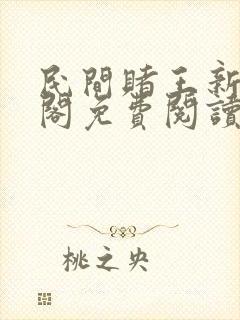 民間賭王新
閣免費閱讀
桃之央